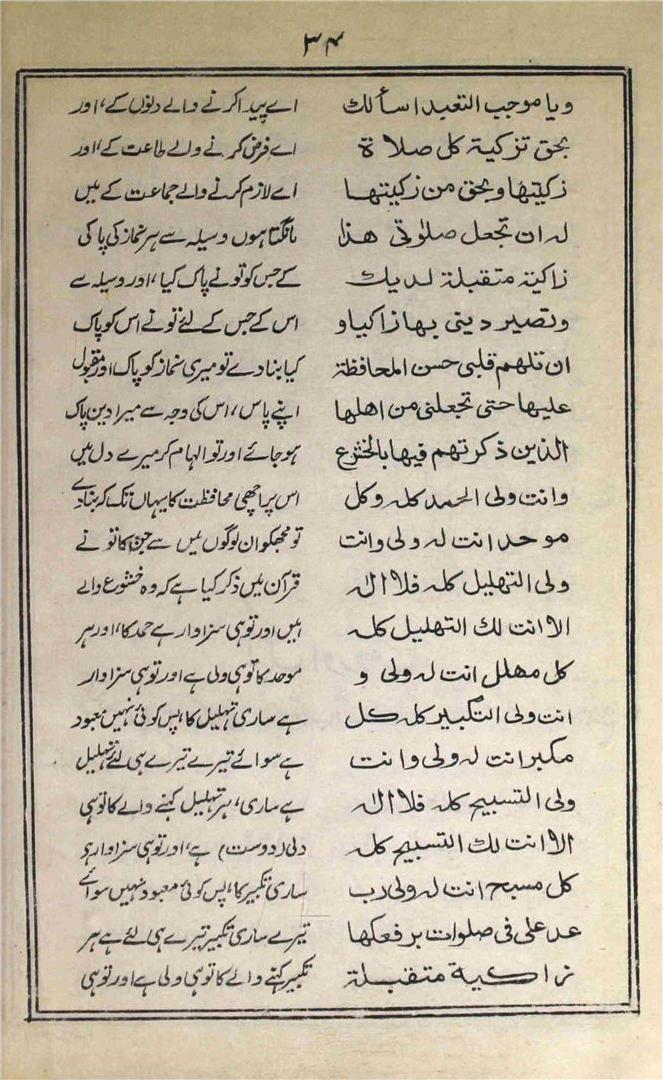 ۳۴
ويا موجب التعبد اسألك
بحق تزكية كل صلاة
زكيتها وبحق من زكيتها
له ان تجعل صلوتى هذا
زاكية متقبلة لديك
وتصير دينى بها زاكيا و
ان تلهم قلبى حسن المحافظة
عليها حتى تجعلنى من اهلها
الذين ذكرتهم فيها بالخشوع
وانت ولى الحمد كله وكل
موحد انت له ولى وانت
ولى التهليل كله فلا اله
الا انت لك التهليل كله
كل مهلل انت له ولى و
انت ولى التكبير كله كل
مكبر انت له ولى وانت
ولى التسبيح كله فلا اله
الا انت لك التسبيح كله
كل مسبح انت له ولى رب
عد على فى صلوات برفعكها
زاكية متقبلة
اے پیدا کرنے والے دنوں کے، اور
اے فرض کرنے والے طاعت کے، اور
اے لازم کرنے والے جماعت کے میں
مانگتا ہوں وسیلہ سے ہر نماز کی پاکی
کے جس کو تو نے پاک کیا، اور وسیلہ سے
اس کے جس کے لئے تو نے اس کو پاک
کیا بنا دے تو میری نماز کو پاک اور مقبول
اپنے پاس، اس کی وجہ سے میرا دین پاک
ہو جائے اور تو الہام کر میرے دل میں
اس پر اچھی محافظت کا یہاں تک کہ بنا دے
تو مجھکو ان لوگوں میں سے جن کا تو نے
قرآن میں ذکر کیا ہے کہ وہ خشوع والے
ہیں اور تو ہی سزاوار ہے حمد کا، اور ہر
موحد کا تو ہی ولی ہے اور تو ہی سزاوار
ہے ساری تہلیل کا، پس کوئی نہیں معبود
ہے سوائے تیرے تیرے ہی لئے تہلیل
ہے ساری، ہر تہلیل کہنے والے کا تو ہی
ولی (دوست) ہے، اور تو ہی سزاوار ہے
ساری تکبیر کا، پس کوئی معبود نہیں سوائے
تیرے ساری تکبیر تیرے ہی لئے ہے ہر
تکبیر کہنے والے کا تو ہی ولی ہے اور تو ہی